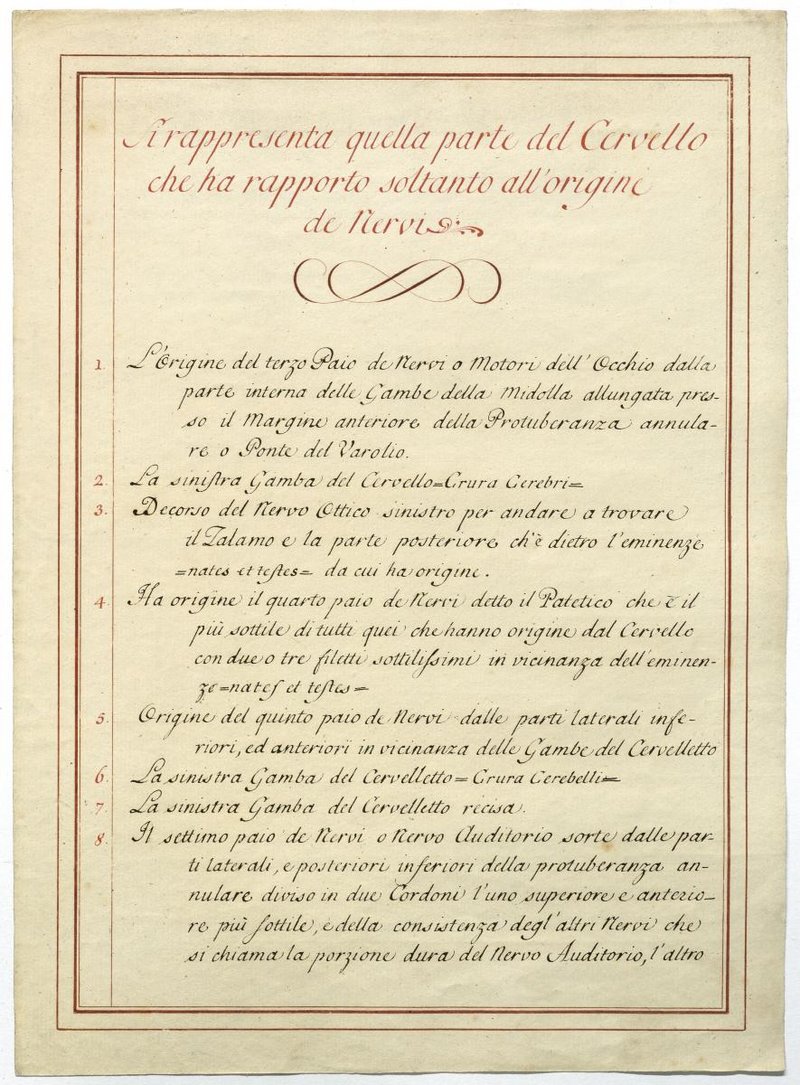 Si rappresenta quella parte del Cervello
che ha rapporto soltanto all'origine
de Nervi
1. L'Origine del terzo Paio de Nervi o Motori dell'Occhio dalla
parte interna delle Gambe della Midolla allungata pres-
so il Margine anteriore della Protuberanza annula-
re o Ponte del Varolio.
2. La sinistra Gamba del Cervello=Crura Cerebri=
3. Decorso del Nervo Ottico sinistro per andare a trovare
il Talamo e la parte posteriore ch'è dietro l'eminenze
=nates et testes= da cui ha origine.
4. Ha origine il quarto paio de Nervi detto il Patetico che è il
più sottile di tutti quei che hanno origine dal Cervello
con due o tre filetti sottilissimi in vicinanza dell'eminen-
ze=nates et testes=
5. Origine del quinto paio de Nervi dalle parti laterali infe-
riori, ed anteriori in vicinanza delle Gambe del Cervelletto
6. La sinistra Gamba del Cervelletto=Crura Cerebelli=
7. La sinistra Gamba del Cervelletto recisa.
8. Il settimo paio de Nervi o Nervo Auditorio sorte dalle par-
ti laterali, e posteriori inferiori della protuberanza an-
nulare diviso in due Cordoni l'uno superiore e anterio-
re più sottile, e della consistenza degl'altri Nervi che
si chiama la porzione dura del Nervo Auditorio, l'altro